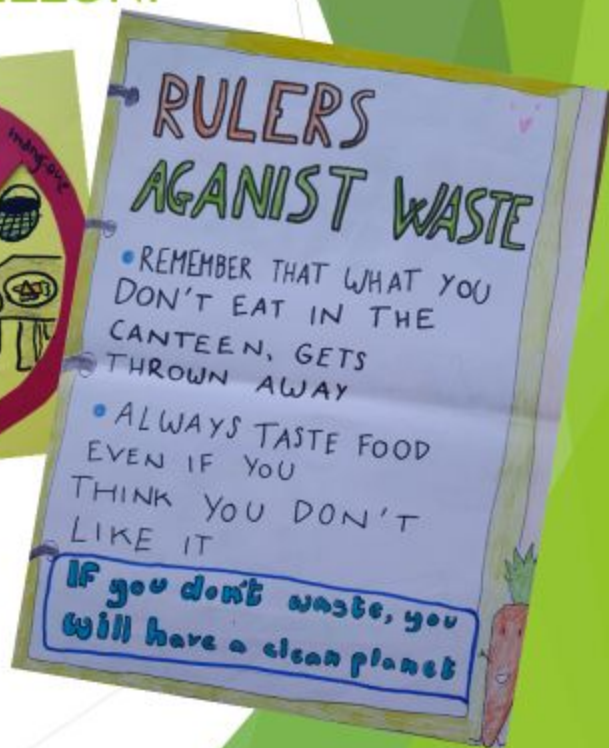 RULERS
AGANIST WASTE
• REMEMBER THAT WHAT YOU
DON'T EAT IN THE
CANTEEN, GETS
THROWN AWAY
• ALWAYS TASTE FOOD
EVEN IF YOU
THINK YOU DON'T
LIKE IT
IF you don't waste, you
will have a clean planet